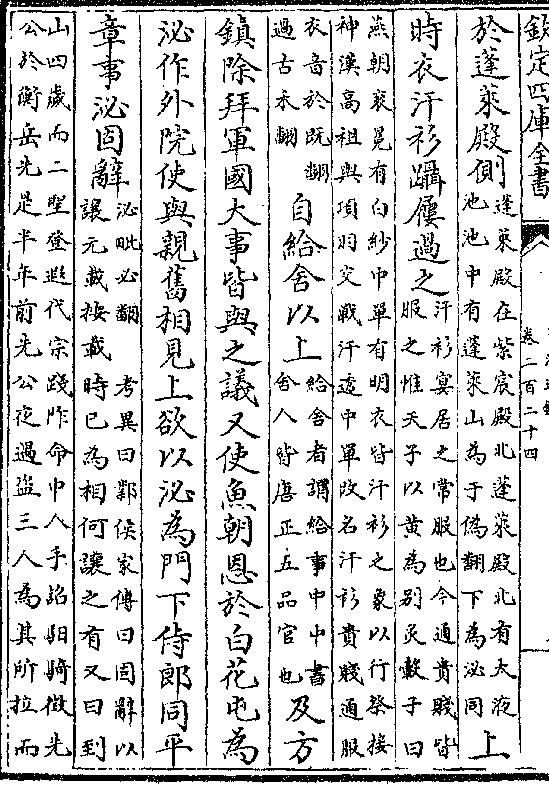 欽定四庫全書
卷二百二十四
於蓬萊殿側
蓬萊殿在紫宸殿北蓬萊殿北有太液
池池中有蓬萊山為于偽翻下為泌同
上
時衣汗衫躡屨過之
汗衫宴居之常服也今通貴賤皆
服之惟天子以黄為别炙轂子曰
燕朝衮冕有白紗中單有明衣皆汗衫之象以行祭接
神漢高祖與項羽交戰汗透中單改名汗衫貴賤通服
衣音於既翻
過古禾翻
自給舍以上
給舍者謂給事中中書
舍人皆唐正五品官也
及方
鎮除拜軍國大事皆與之議又使魚朝恩於白花屯為
泌作外院使與親舊相見上欲以泌為門下侍郎同平
章事泌固辭
泌毗必翻 考異曰鄴侯家傳曰固辭以
讓元載按載時已為相何讓之有又曰到
山四歲而二聖登遐代宗踐阼命中人手詔馹騎徵先
公於衡岳先是半年前先公夜遇盜三人為其所拉而